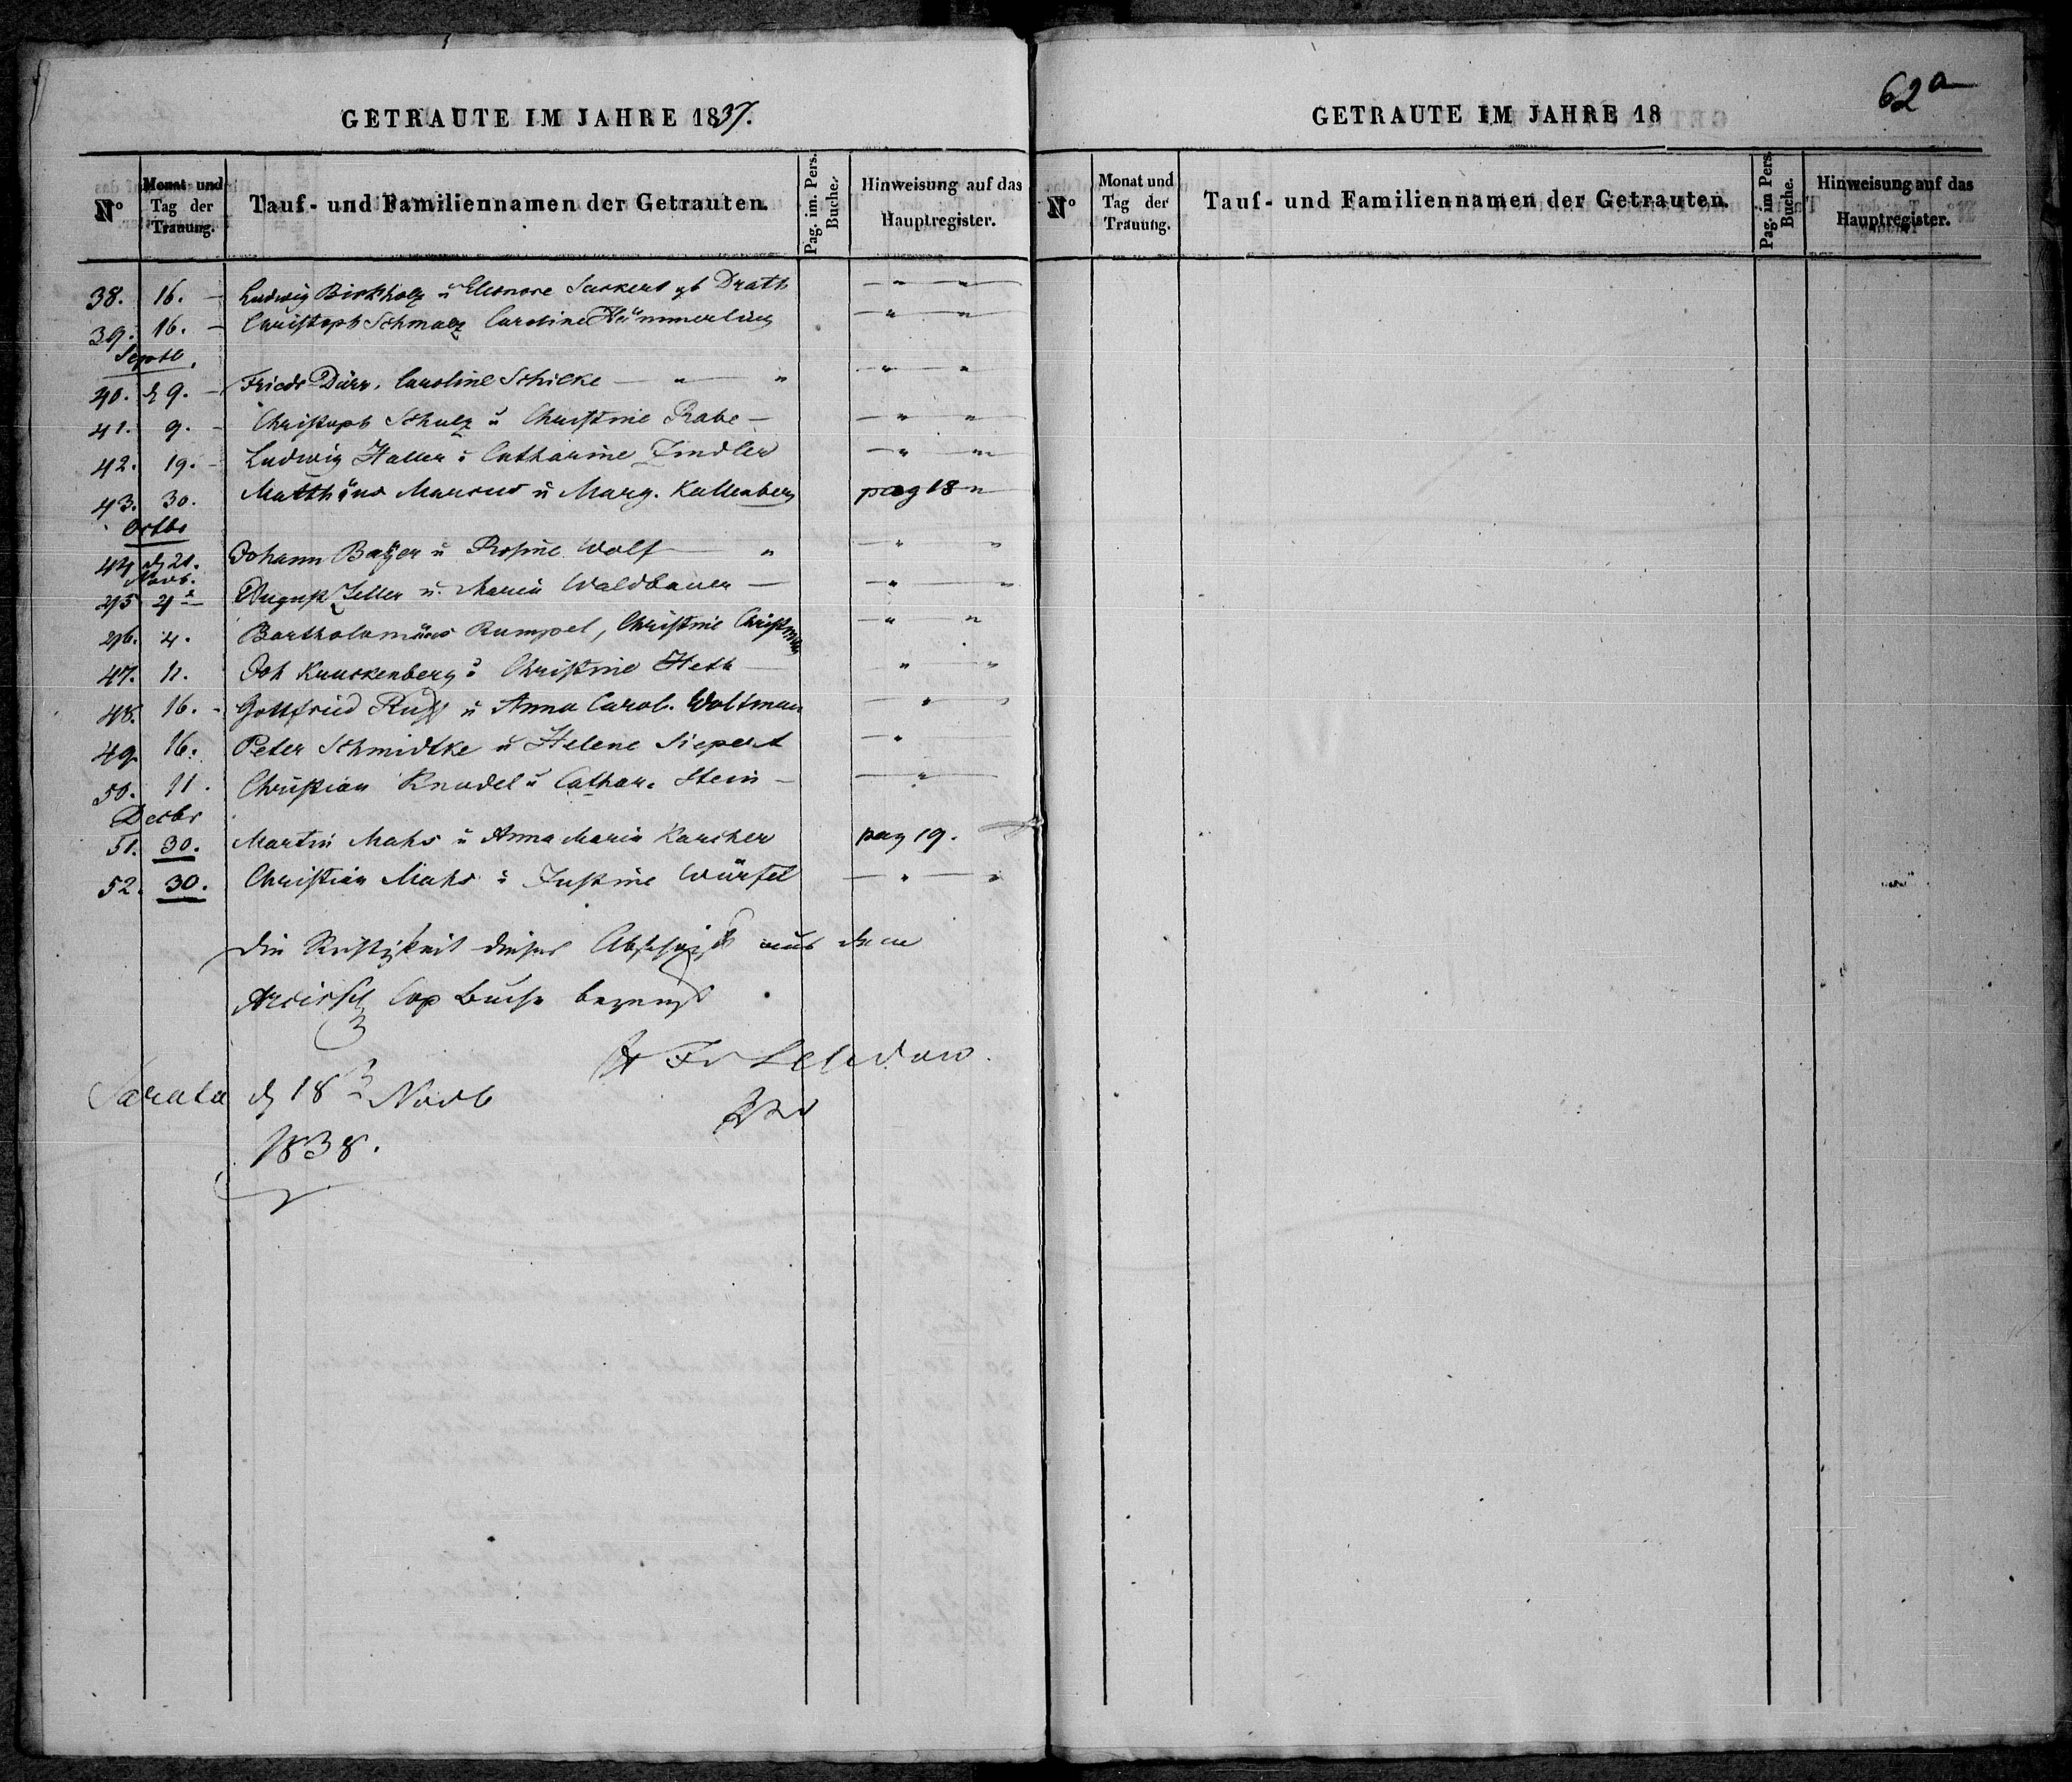 GETRAUTE IM JAHRE 1837.
No Monat und Tag der Trauung. Tauf- und Familiennamen der Getrauten. Pag. im. Pers. Buche. Hinweisung auf das Hauptregister.
38. 16. - Ludwig Birkholz u Eleonore Sackert gb Drath — " — "
39. 16. - Christoph Schmalz Caroline Hämmerling — " — "
Septb.
40. d 9. - Friedr Dürr, Caroline Schilke — " — " — " — "
41. 9. - Christoph Schulz u Christine Rabe — — " — "
42. 19. - Ludwig Haller u Catharine Zindler — " — "
43. 30. Matthäus Marcus u Marg. Kallenberg pag 18 "
Octbr
44 d 21. Johann Bayer u Rosine Wolf — " — " — "
Novb.
45 4 — August Zeller u. Maria Waldbauer — — " — "
46. 4. Bartholomäus Rumpel, Christine Christman — " — "
47. 11. Joh Kruckenberg u Christine Heth — " — "
48. 16. - Gottfried Ruff u Anna Carol. Woltman — " — "
49. 16. Peter Schmidtke u Helene Siepert — "
50. 11. Christian Knodel u Cathar. Stein — — " —
Decbr
51. 30. Martin Mahs u Anna Maria Karcher pag 19.
52. 30. Christian Mahs u Justine Würfel — " — "
Die Richtigkeit dieser Abschrift aus dem
Arcisch Cop Buche bezeugt
Fr
Sarata d 18 Novb
1838.
62a
GETRAUTE IM JAHRE 18
No Monat und Tag der Trauung. Tauf- und Familiennamen der Getrauten. Pag. im Pers. Buche. Hinweisung auf das Hauptregister.